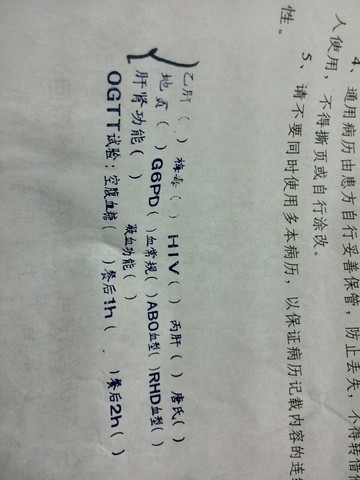 4、通用病历由患方自行妥善保管，防止丢失，不得转借他
人使用，不得撕页或自行涂改。
5、请不要同时使用多本病历，以保证病历记载内容的连续
性。
乙肝（ ）梅毒（ ）HIV（ ）丙肝（ ）唐氏（ ）
地贫（ ）G6PD（ ）血常规（ ）ABO血型（ ）RHD血型（ ）
肝肾功能（ ）凝血功能（ ）
OGTT试验：空腹血糖（ ）餐后1h（ ）餐后2h（ ）